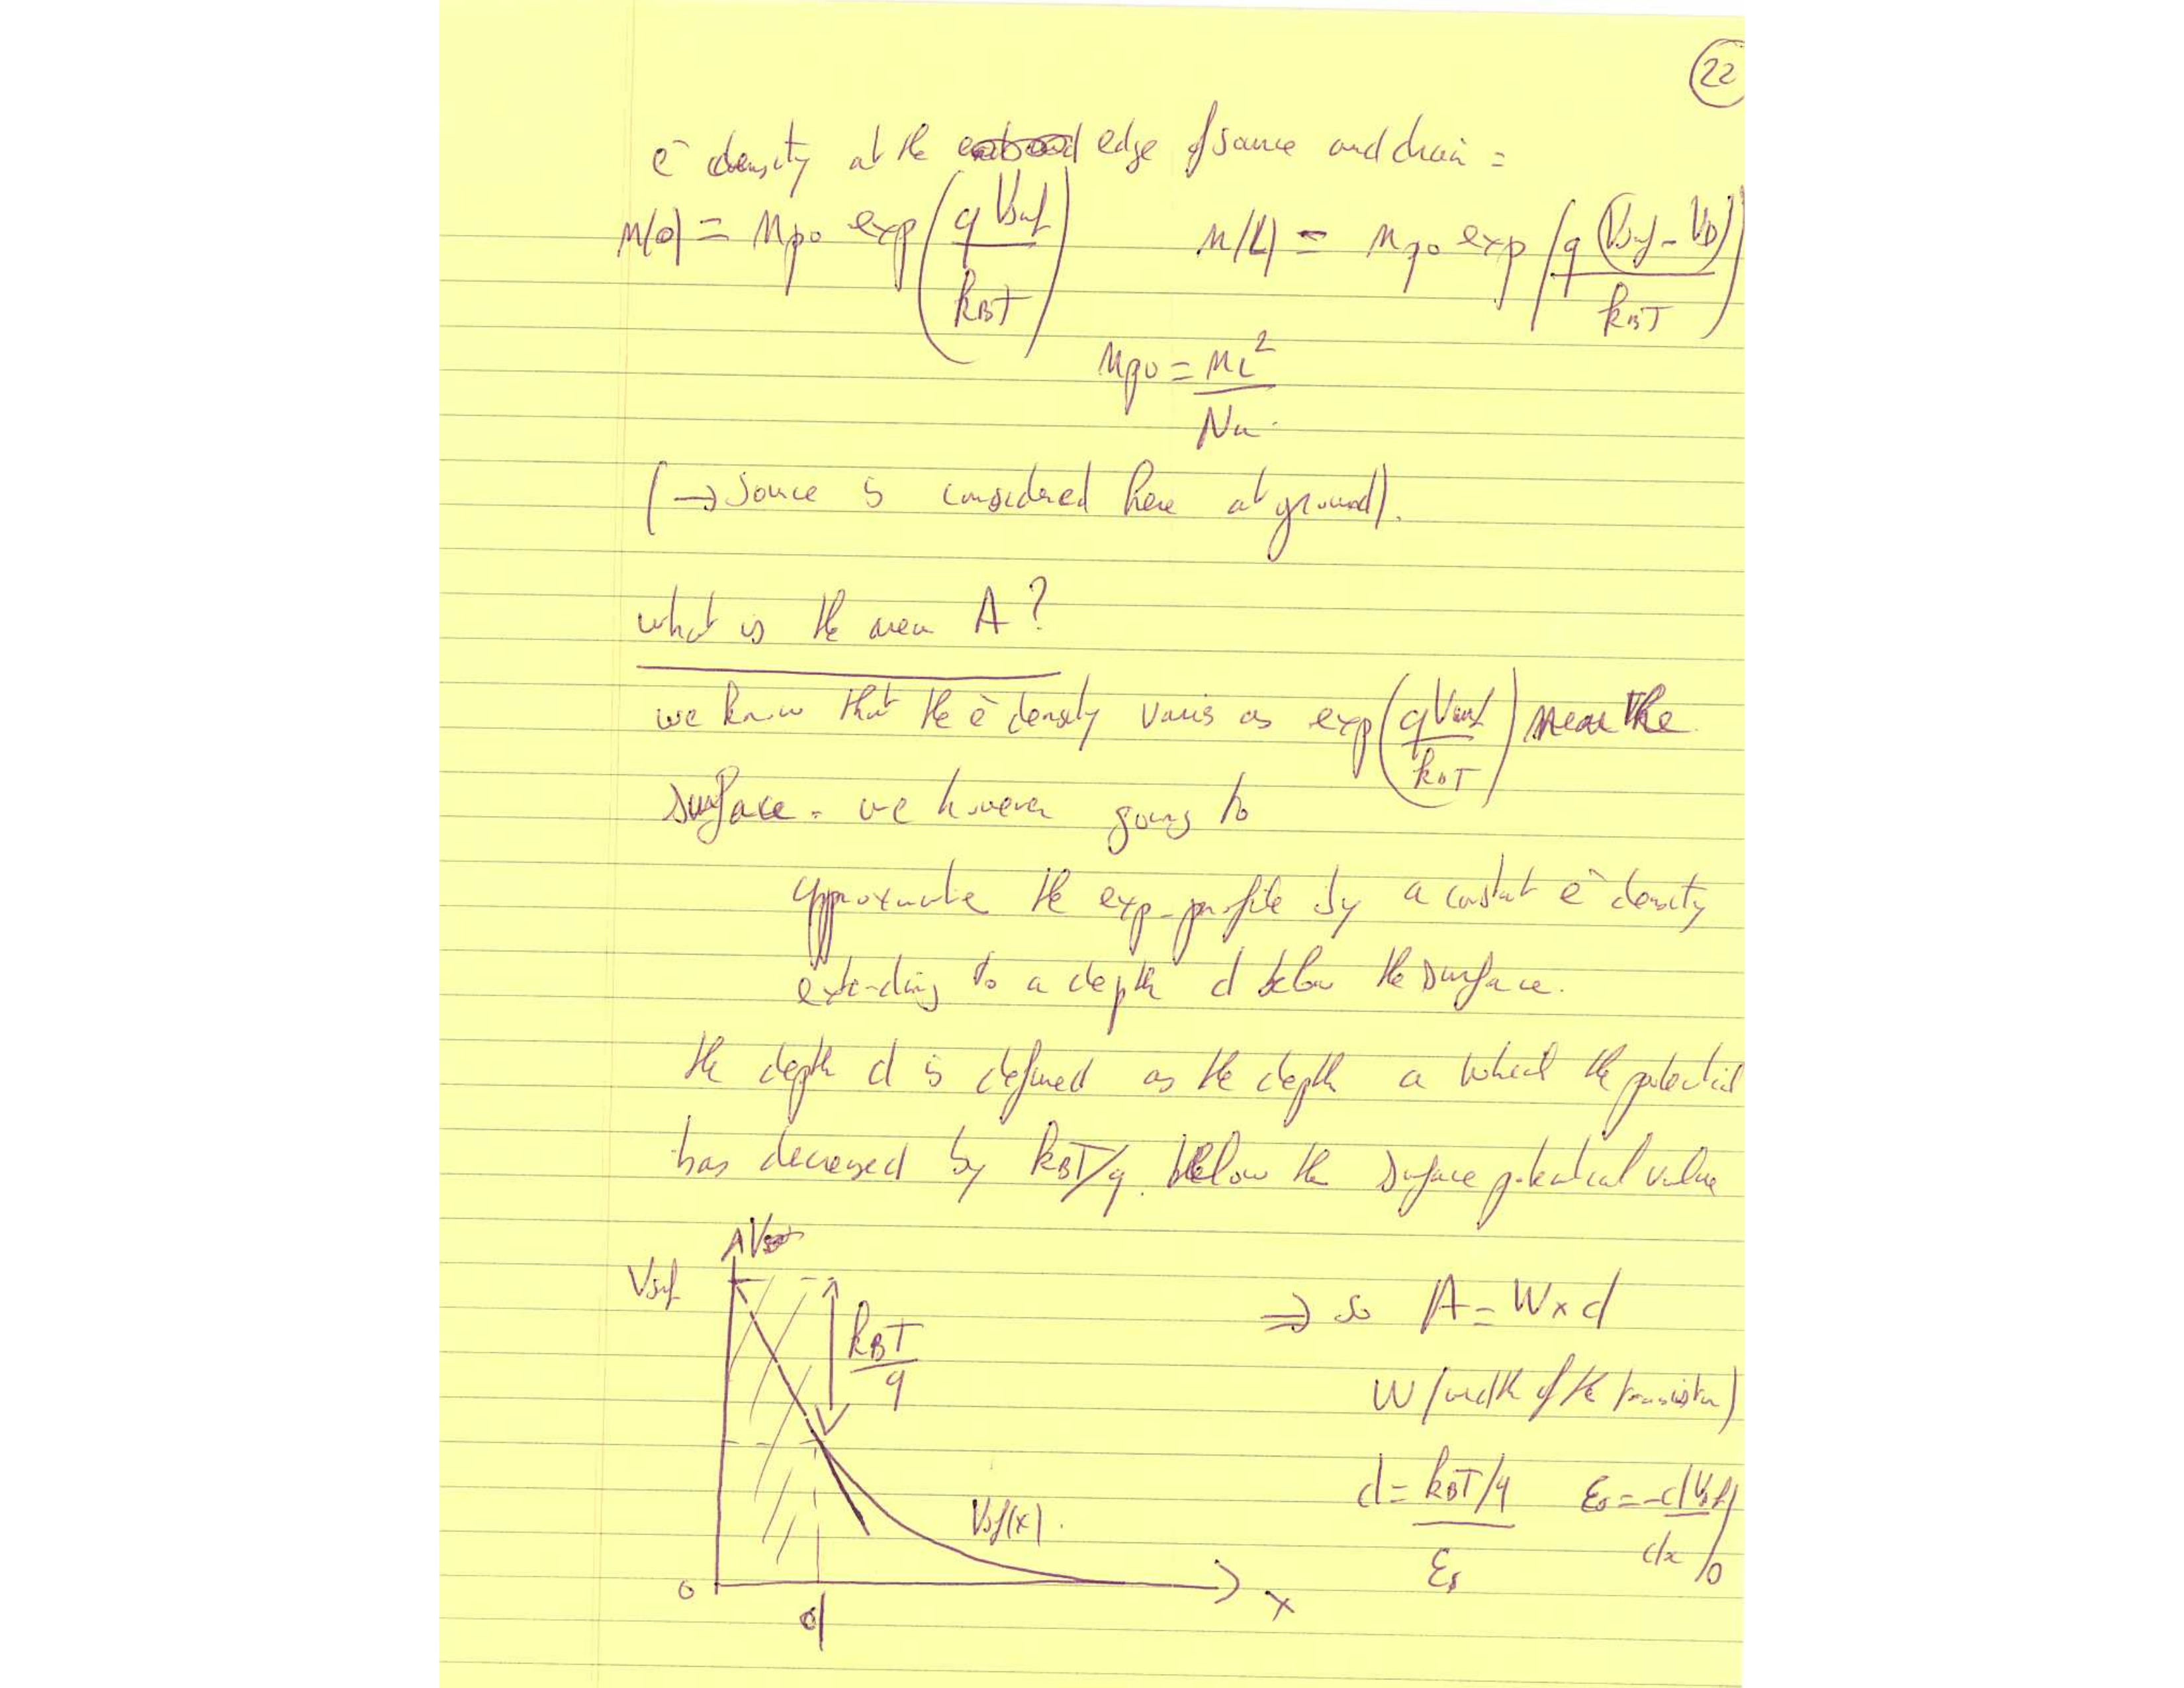 22
e⁻ density at the edge of source and drain =
n(0) = npo exp(q Vsurf / kBT)    n(L) = npo exp(q (Vsurf - VD) / kBT)
npo = ni² / Na.
(→ source is considered here at ground).
what is the area A?
we know that the e⁻ density varis as exp(q Vsurf / kBT) near the
surface. we however going to
approximate the exp-profile by a constant e⁻ density
extending to a depth d below the surface.
the depth d is defined as the depth a which the potential
has decreased by kBT/q. below the surface potential value
Vsurf
kBT / q
⇒ so A = W x d
W (width of the transistor)
d = kBT/q / Es    Es = -dVsurf / dx |0
Vsf(x).
0
d
x